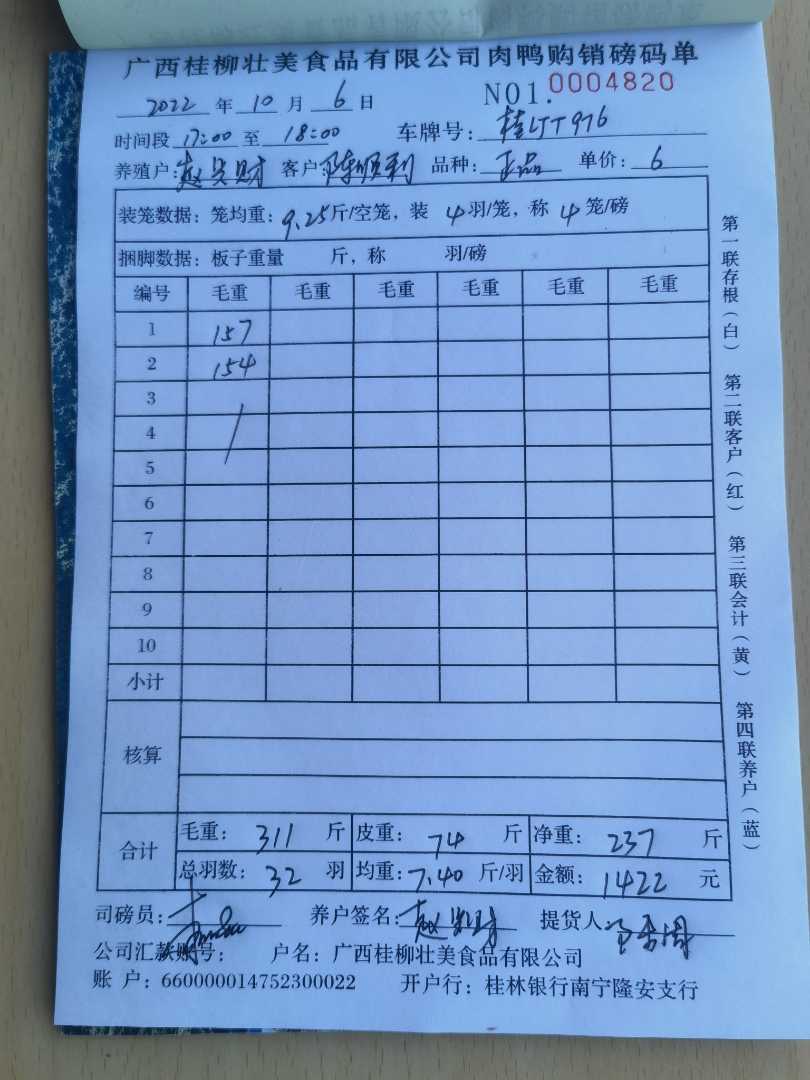 广西桂柳壮美食品有限公司肉鸭购销磅码单
2022 年 10 月 6 日 NO1. 0004820
时间段 17:00 至 18:00 车牌号:
养殖户: 客户: 陈顺利 品种: 正品 单价: 6
装笼数据: 笼均重: 9.25斤/空笼, 装 4 羽/笼, 称 4 笼/磅
捆脚数据: 板子重量 斤, 称 羽/磅
编号 毛重 毛重 毛重 毛重 毛重 毛重
1 157
2 154
3
4
5
6
7
8
9
10
小计
核算
合计 毛重: 311 斤 皮重: 74 斤 净重: 237 斤
总羽数: 32 羽 均重: 7.40 斤/羽 金额: 1422 元
司磅员: 养户签名: 提货人:
公司汇款账号: 户名: 广西桂柳壮美食品有限公司
账 户: 660000014752300022 开户行: 桂林银行南宁隆安支行
第一联存根(白) 第二联客户(红) 第三联会计(黄) 第四联养户(蓝)